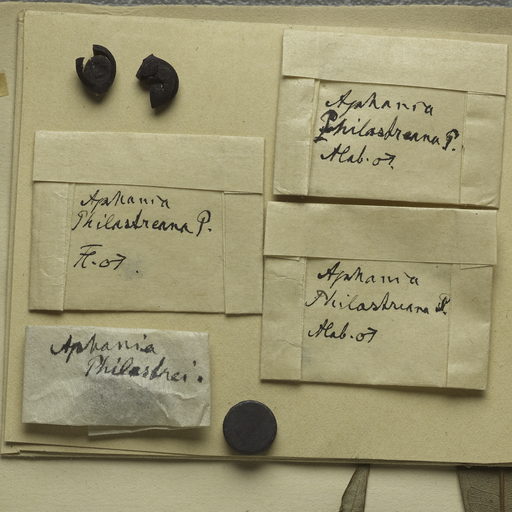 Aphania
Philastreana P.
Alab. ♂.
Aphania
Philastreana P.
Fl. ♂.
Aphania
Philastreana P.
Alab. ♂
Aphania
Philastrei.